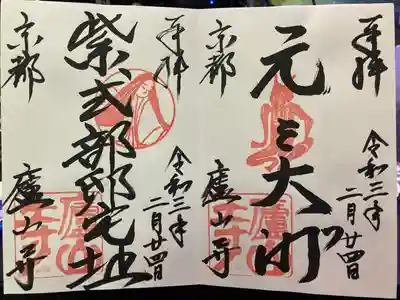 奉拝
令和三年
二月廿四日
元三大師
京都
廬山寺
奉拝
令和三年
二月廿四日
紫式部邸宅址
京都
廬山寺